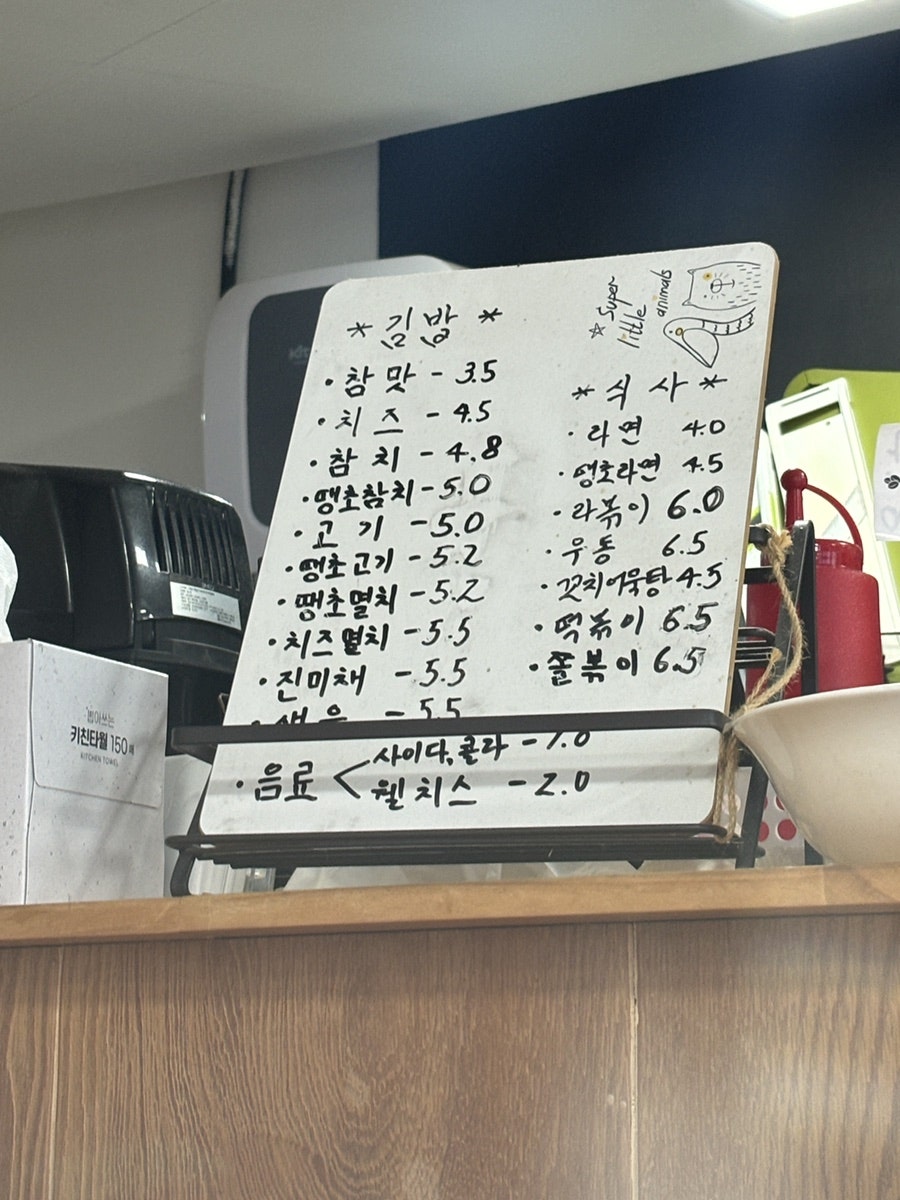 * 김밥 *
· 참맛 - 3.5
· 치즈 - 4.5
· 참치 - 4.8
· 땡초참치 - 5.0
· 고기 - 5.0
· 땡초고기 - 5.2
· 땡초멸치 - 5.2
· 치즈멸치 - 5.5
· 진미채 - 5.5
- 5.5
☆ Super
little
animals
* 식사 *
· 라면 4.0
· 땡초라면 4.5
· 라볶이 6.0
· 우동 6.5
· 꼬치어묵탕 4.5
· 떡볶이 6.5
· 쫄볶이 6.5
· 음료 < 사이다, 콜라 -
웰치스 - 2.0
뽑아쓰는
키친타월 150매
KITCHEN TOWEL